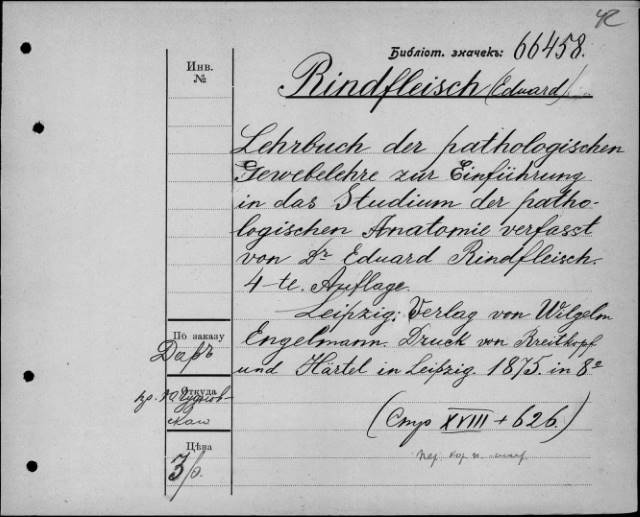 42
Библіот. значекъ: 66458.
Инв.
№
Rindfleisch (Eduard)
Lehrbuch der pathologischen
Gewebelehre zur Einführung
in das Studium der patho-
logischen Anatomie verfasst
von Dr Eduard Rindfleisch.
4-te. Auflage.
Leipzig. Verlag von Wilgelm
Engelmann. Druck von Breitkopf
und Härtel in Leipzig. 1875. in 8º
(Стр XVIII + 626.)
По заказу
Даръ
Откуда
скаго
Цѣна
3/р.
пер. кор.